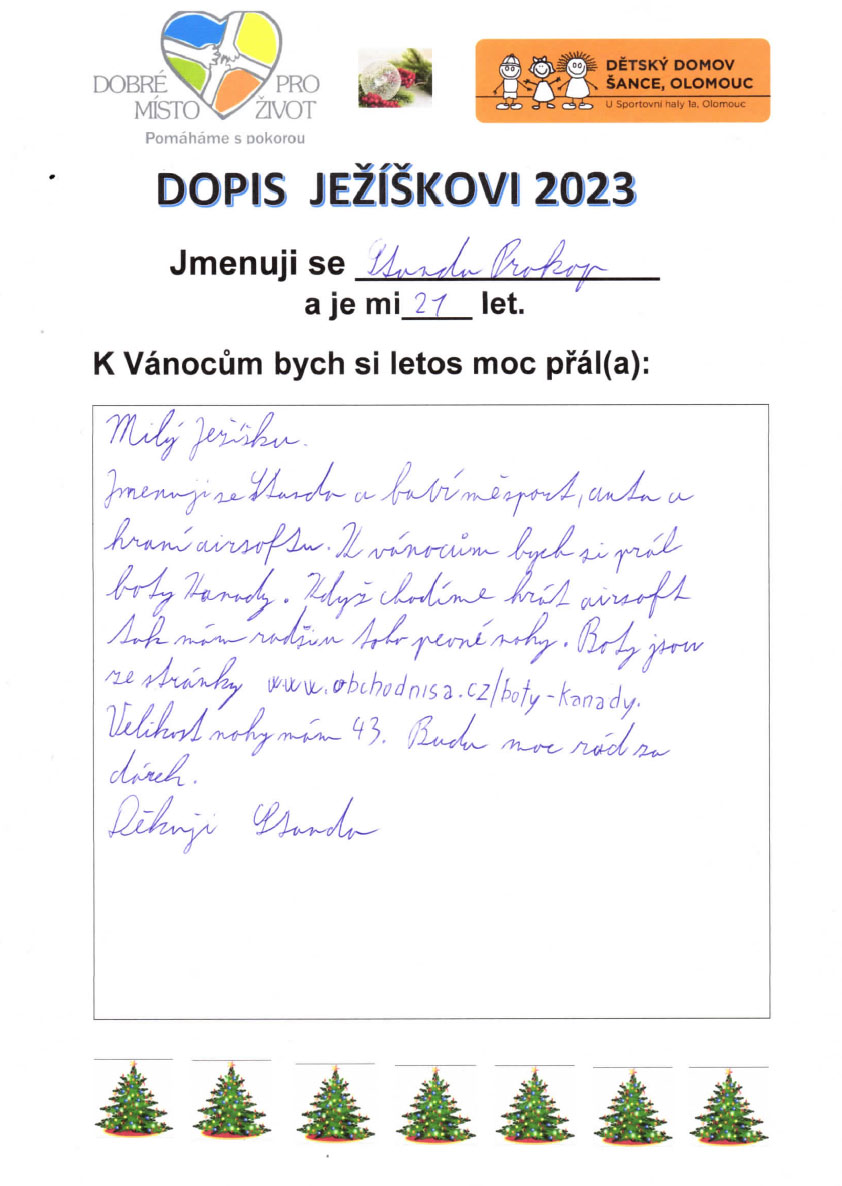 DOBRÉ PRO
MÍSTO ŽIVOT
Pomáháme s pokorou
DĚTSKÝ DOMOV
ŠANCE, OLOMOUC
U Sportovní haly 1a, Olomouc
DOPIS JEŽÍŠKOVI 2023
Jmenuji se Standa Prokop
a je mi 21 let.
K Vánocům bych si letos moc přál(a):
Milý Ježíšku.
Jmenuji se Standa a baví mě sport, auta a
hraní airsoftu. K vánocům bych si prál
boty Kanady. Když chodíme hrát airsoft
tak mám radšiu toho pevné nohy. Boty jsou
ze stránky www.obchodnisa.cz/boty-kanady.
Velikost nohy mám 43. Budu moc rád za
dárek.
Děkuji Standa